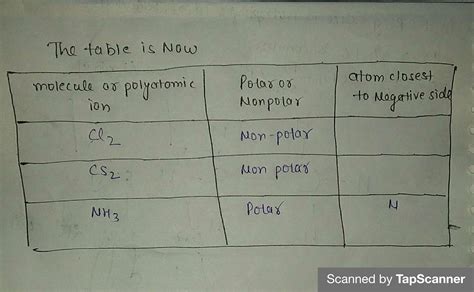 The table is Now
molecule or polyatomic ion
Polar or Nonpolar
atom closest to Negative side
Cl2
Non-polar
CS2
Non polar
NH3
Polar
N
Scanned by TapScanner